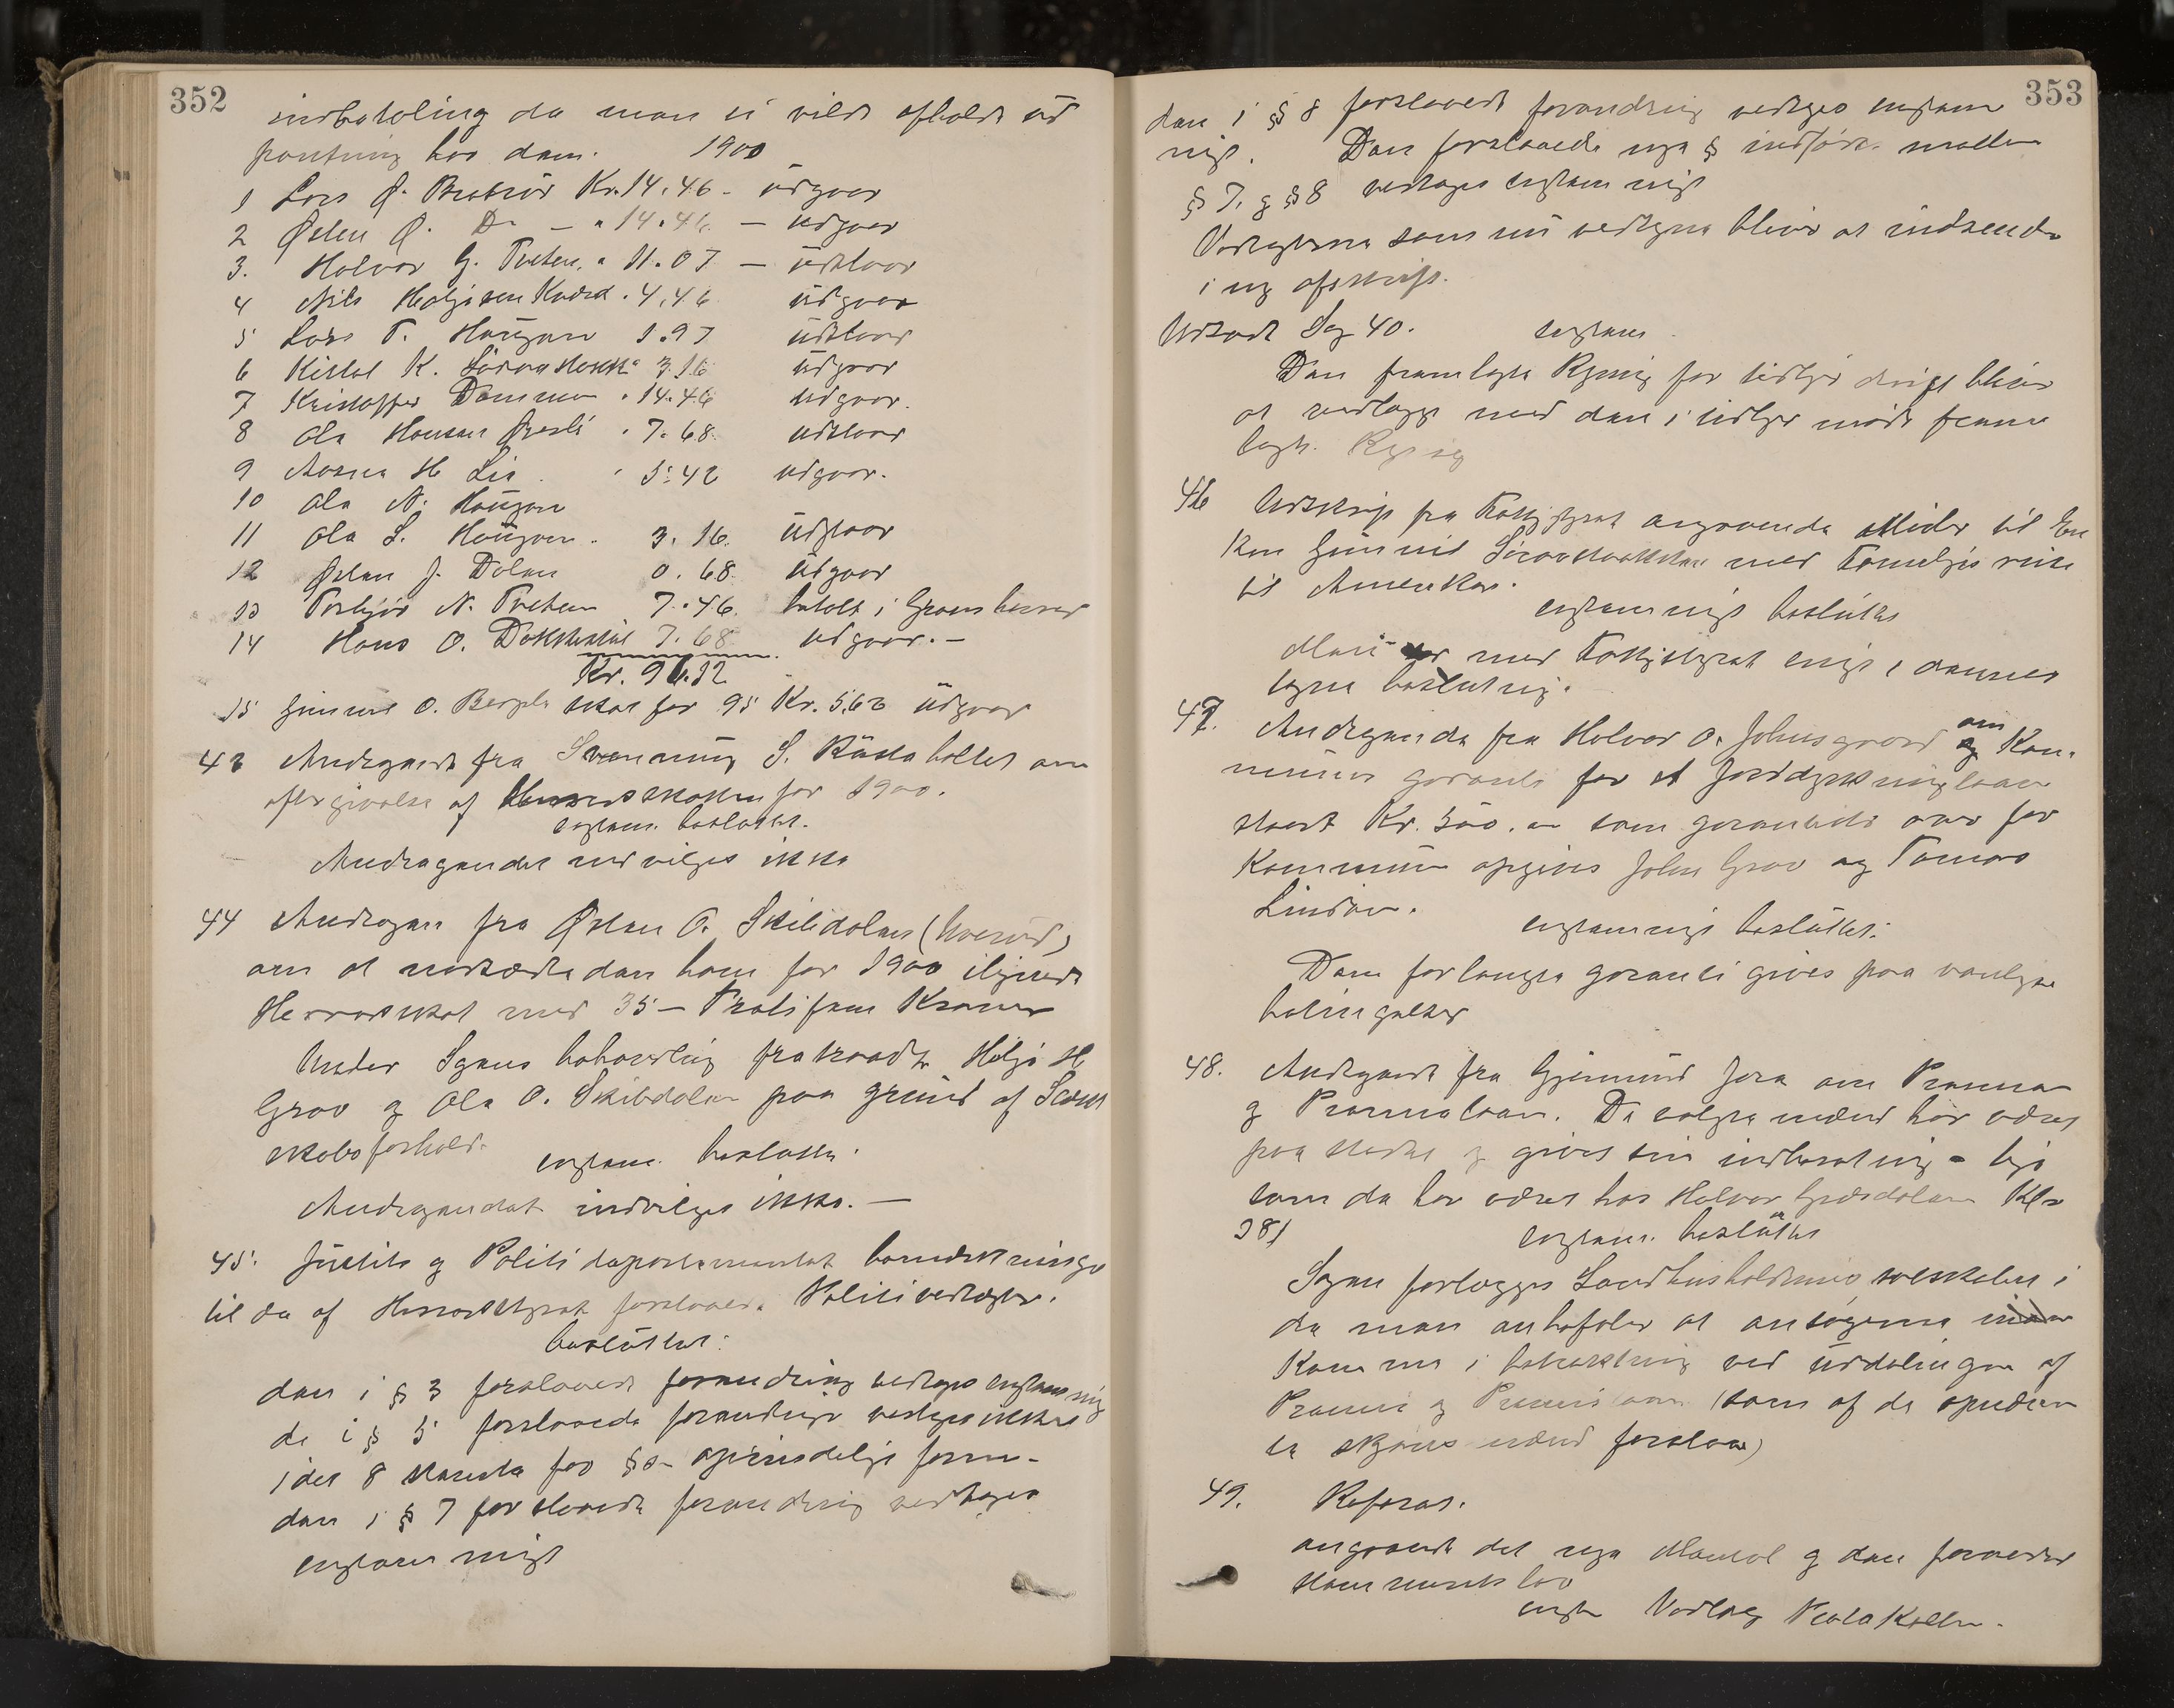 352
indbetaling da man ei vilde afholde ud
pantning hos dem. 1900
1 Lars Ø. Kr. 14.46 - udgaar
2 Østen Ø. Do - " 14.46 - udgaar
3. Halvor G. Tveten " 11.07 - udstaar
4 Nils Helgesen . 4.46 udgaar
5 Lars T. Haugen 1.97 udstaar
6 Kittel K. 3.16 udgaar
7 Kristoffer Dammen . 14.46 udgaar.
8 Ola Hansen . 7.68. udstaar
9 Aasne H Lia . 5.42 udgaar.
10 Ola N. Haugen
11 Ola S. Haugen . 3.16. udstaar
12 Østen J. Dalen 0.68. udgaar
13 Torbjør N. Tveten 7.46. betalt i Grans herred
14 Hans O. 7.68 udgaar. -
Kr. 96.32
15 Gunnar O. skat for 95 Kr. 5.62 udgaar
43 Andragende fra Svenning S. om
eftergivelse af Herredsskatten for 1900.
enstem. besluttet.
Andragendet indvilges ikke
44 Andragen fra Østen O. Skibdalen
om at nedsætte den ham for 1900 ilignede
Herredsskat med 35 - Tretifem Kroner
Under Sagens behandling fratraadte Helge H
Grav og Ola O. Skibdalen paa grund af
skabsforhold. enstem. besluttet.
Andragendet indvilges ikke. -
45. Justits og Politidepartementet bemerkninger
til de af Herredsstyret foreslaaede Politivedtægter.
besluttet:
den i § 3 foreslaaede forandring vedtages enstemmig
de i § 5 foreslaaede forandringe vedtages ikke
idet 8 stemte for §s oprindelige form -
den i § 7 foreslaaede forandring vedtages
enstemmigt
353
den i § 8 foreslaaede forandring vedtages enstem
migt. Den foreslaaede nye § indføres mellem
§ 7. og § 8 vedtages enstemmigt
Vedtægterne som nu vedtagne bliver at indsende
i ny afskrift.
Udsat Sag 40. enstem
Den fremlagte Regning for tidligere drift bliver
at vedlægge med den i tidligere møde frem
lagte Regning
46 Udskrift fra Fattigstyret angaaende Midler til En
ken Gunnild med Familjes reise
til Amerika.
enstemmigt besluttes
Man er med Fattigstyret enig i dennes
tagne beslutning.
47. Andragende fra Halvor O. Johnsgaard om Kom
munens garanti for et jorddyrkningslaan
stort Kr. 300. som garantister over for
Kommunen opgives John Grav og Tomas
Lindaas.
enstemmigt besluttet:
Den forlangte garanti gives paa vanlige
betingelser
48. Andragende fra Gjermund Jore om Præmie
og Præmielaan. De valgte mænd har været
paa stedet og givet sin indberetning - lige
som de har været hos Halvor
38) enstem. besluttes
Sagen forlægges Landhusholdningsselskabet i
de man anbefaler at ansøgerne
kommer i betraktning ved uddelingen af
Præmie og Præmielaan (som af de opnævn
te skjøns mænd foreslaa)
49. Referat.
angaaende det nye Mantal og den forandrede
stemmerets lov
enst Vedlæg Protokollen.